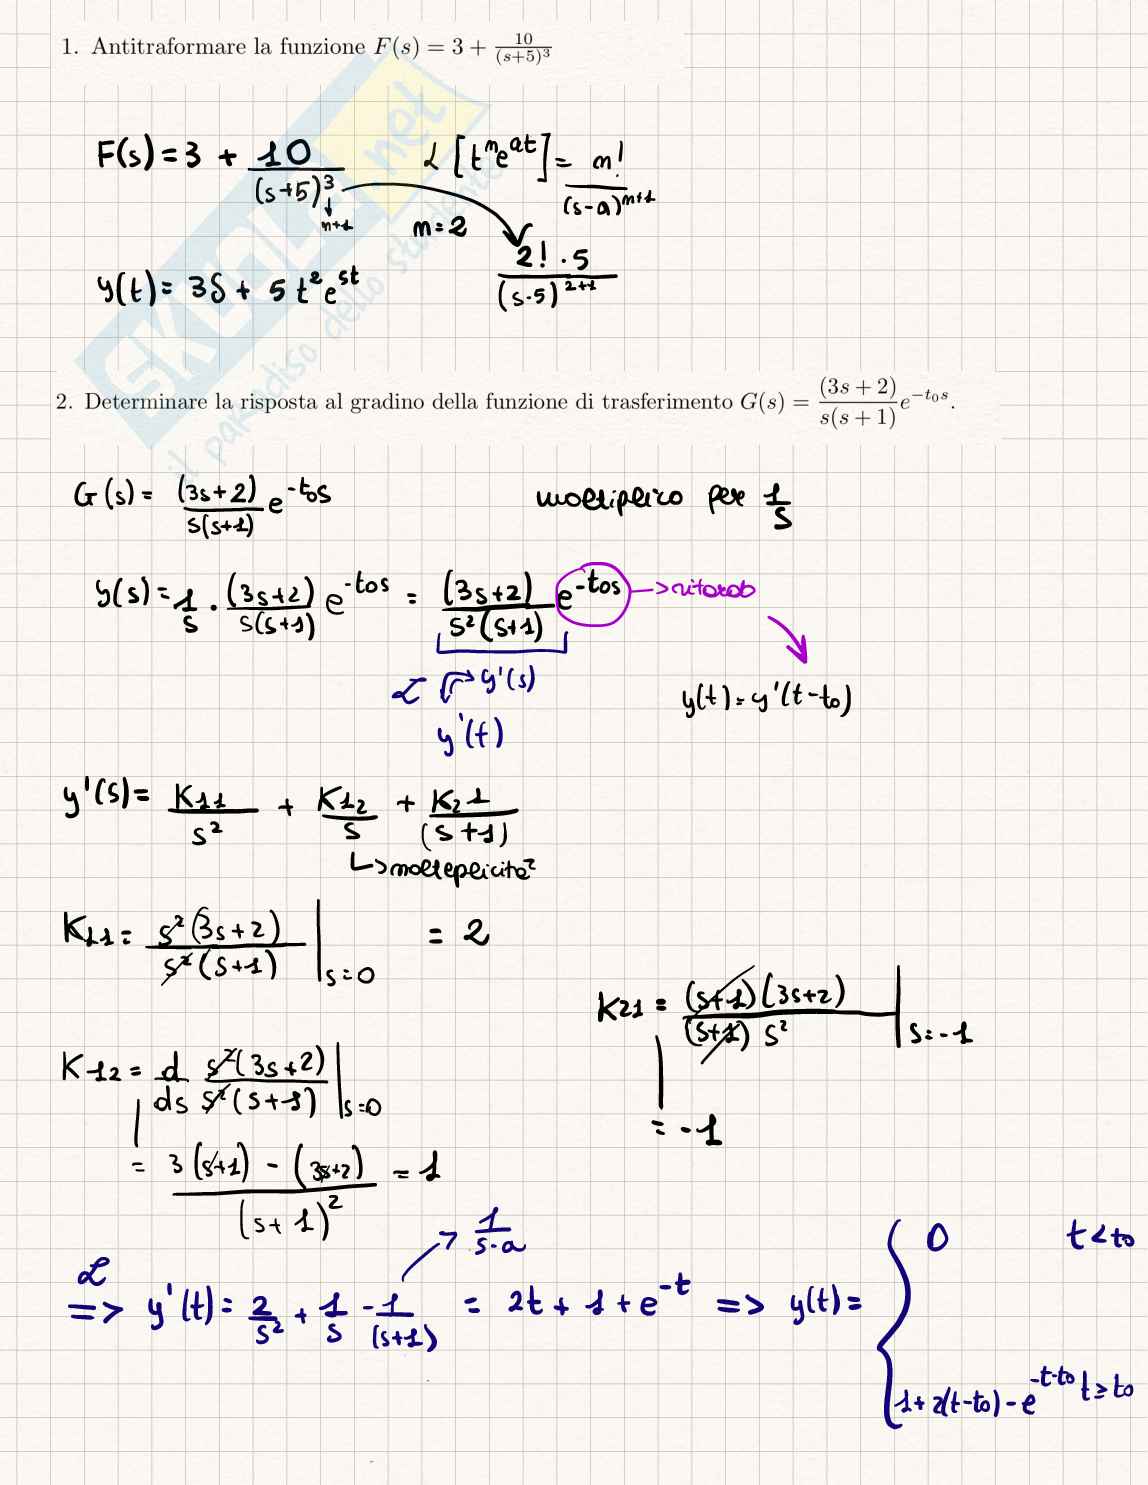 1. Antitraformare la funzione F(s) = 3 + 10/(s+5)^3
F(s) = 3 + 10/(s+5)^3   L[t^n e^at] = n!/(s-a)^(n+1)
n+1   n=2
2!·5/(s-5)^(2+1)
y(t) = 3δ + 5t^2 e^5t
SKUOLA.net
il paradiso dello studente
2. Determinare la risposta al gradino della funzione di trasferimento G(s) = (3s+2)/s(s+1) e^(-t₀s).
G(s) = (3s+2)/s(s+1) e^(-t₀s)   moltiplico per 1/s
y(s) = 1/s · (3s+2)/s(s+1) e^(-t₀s) = (3s+2)/s²(s+1) e^(-t₀s) → ritardo
L   y'(s)   y(t) = y'(t-t₀)
y'(t)
y'(s) = K11/s² + K12/s + K21/(s+1)
↳ molteplicità
K11 = s²(3s+2)/s²(s+1) |s=0 = 2
K21 = (s+1)(3s+2)/(s+1)s² |s=-1
K12 = d/ds s²(3s+2)/s²(s+1) |s=0
= -1
= 3(s+1) - (3s+2)/(s+1)² = 1
1/s-a
L => y'(t) = 2/s² + 1/s - 1/(s+1) = 2t + 1 + e^-t => y(t) = { 0   t < t₀
1 + 2(t-t₀) - e^(-t-t₀)   t ≥ t₀